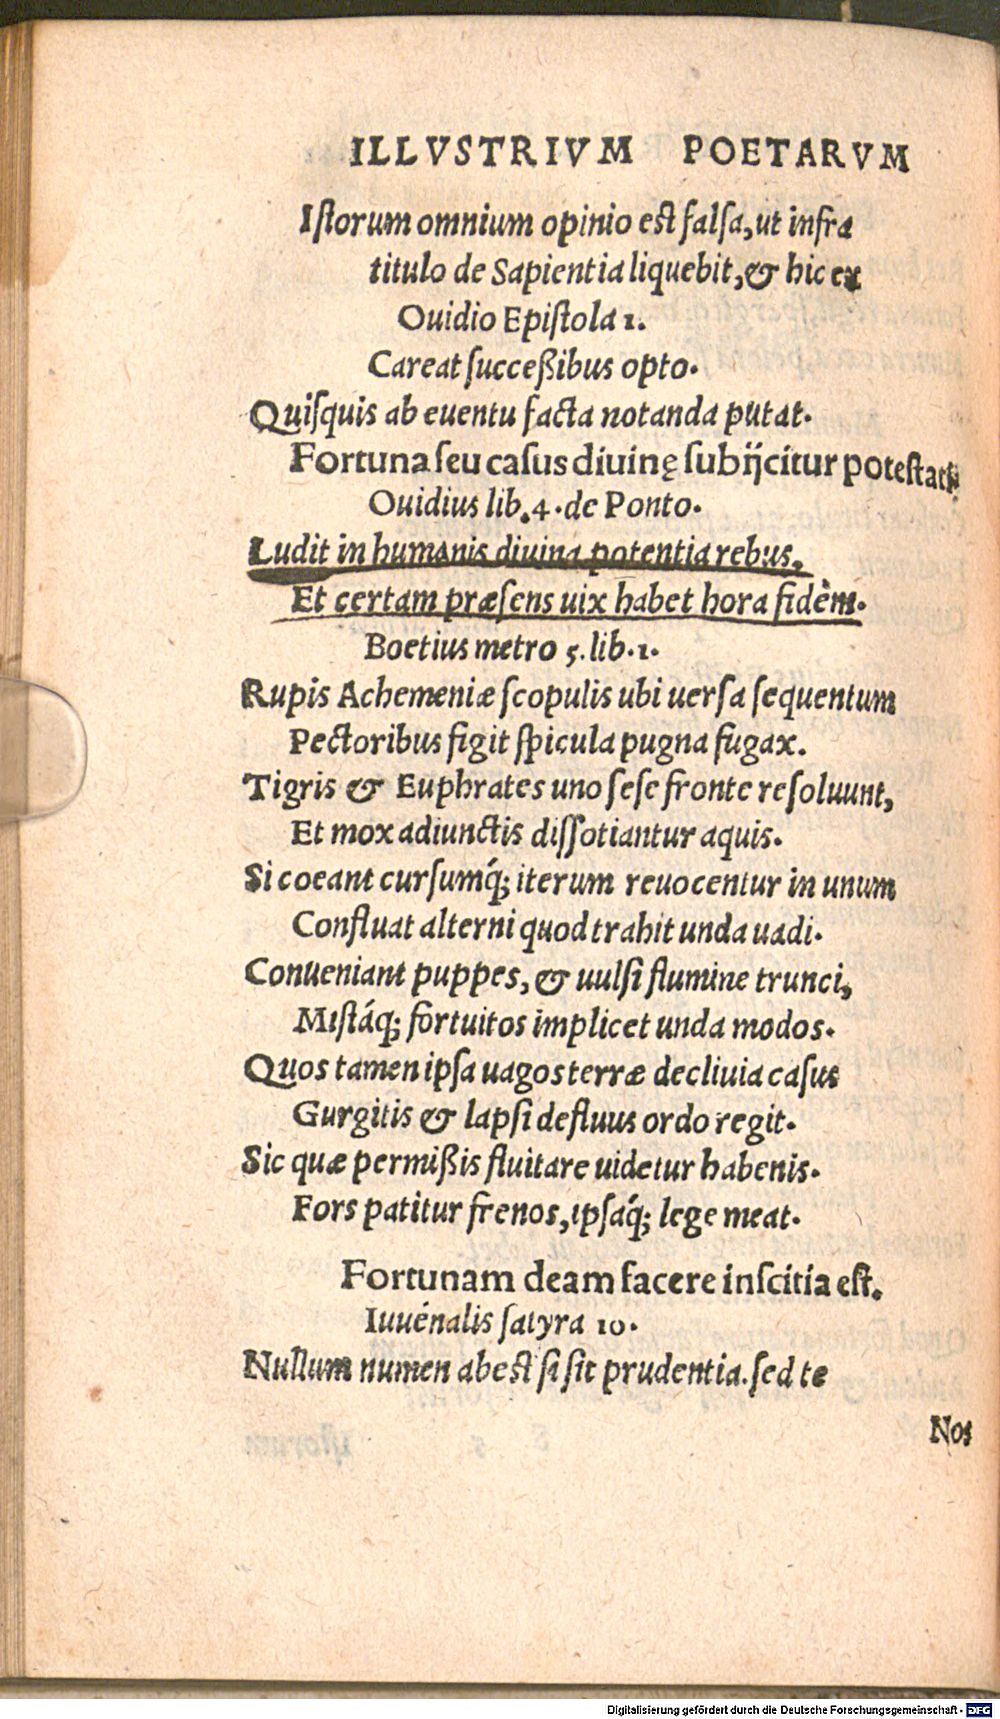 ILLVSTRIVM POETARVM
Iſtorum omnium opinio est falſa, ut infra
titulo de Sapientia liquebit, & hic ex
Ouidio Epiſtola 1.
Careat ſucceßibus opto.
Quiſquis ab euentu facta notanda putat.
Fortuna ſeu caſus diuinę ſubijcitur poteſtati
Ouidius lib. 4. de Ponto.
Ludit in humanis diuina potentia rebus,
Et certam præſens uix habet hora fidem.
Boetius metro 5. lib. 1.
Rupis Achemeniæ ſcopulis ubi uerſa ſequentum
Pectoribus figit ſpicula pugna fugax.
Tigris & Euphrates uno ſeſe fronte reſoluunt,
Et mox adiunctis diſſotiantur aquis.
Si coeant curſumq́; iterum reuocentur in unum
Confluat alterni quod trahit unda uadi.
Conueniant puppes, & uulſi flumine trunci,
Miſtáq; fortuitos implicet unda modos.
Quos tamen ipſa uagos terræ decliuia caſus
Gurgitis & lapſi defluus ordo regit.
Sic quæ permißis fluitare uidetur habenis.
Fors patitur frenos, ipſaq́; lege meat.
Fortunam deam facere inſcitia eſt.
Iuuénalis ſatyra 10.
Nullum numen abest ſi ſit prudentia. ſed te
Nos
Digitalisierung gefördert durch die Deutsche Forschungsgemeinschaft - DFG